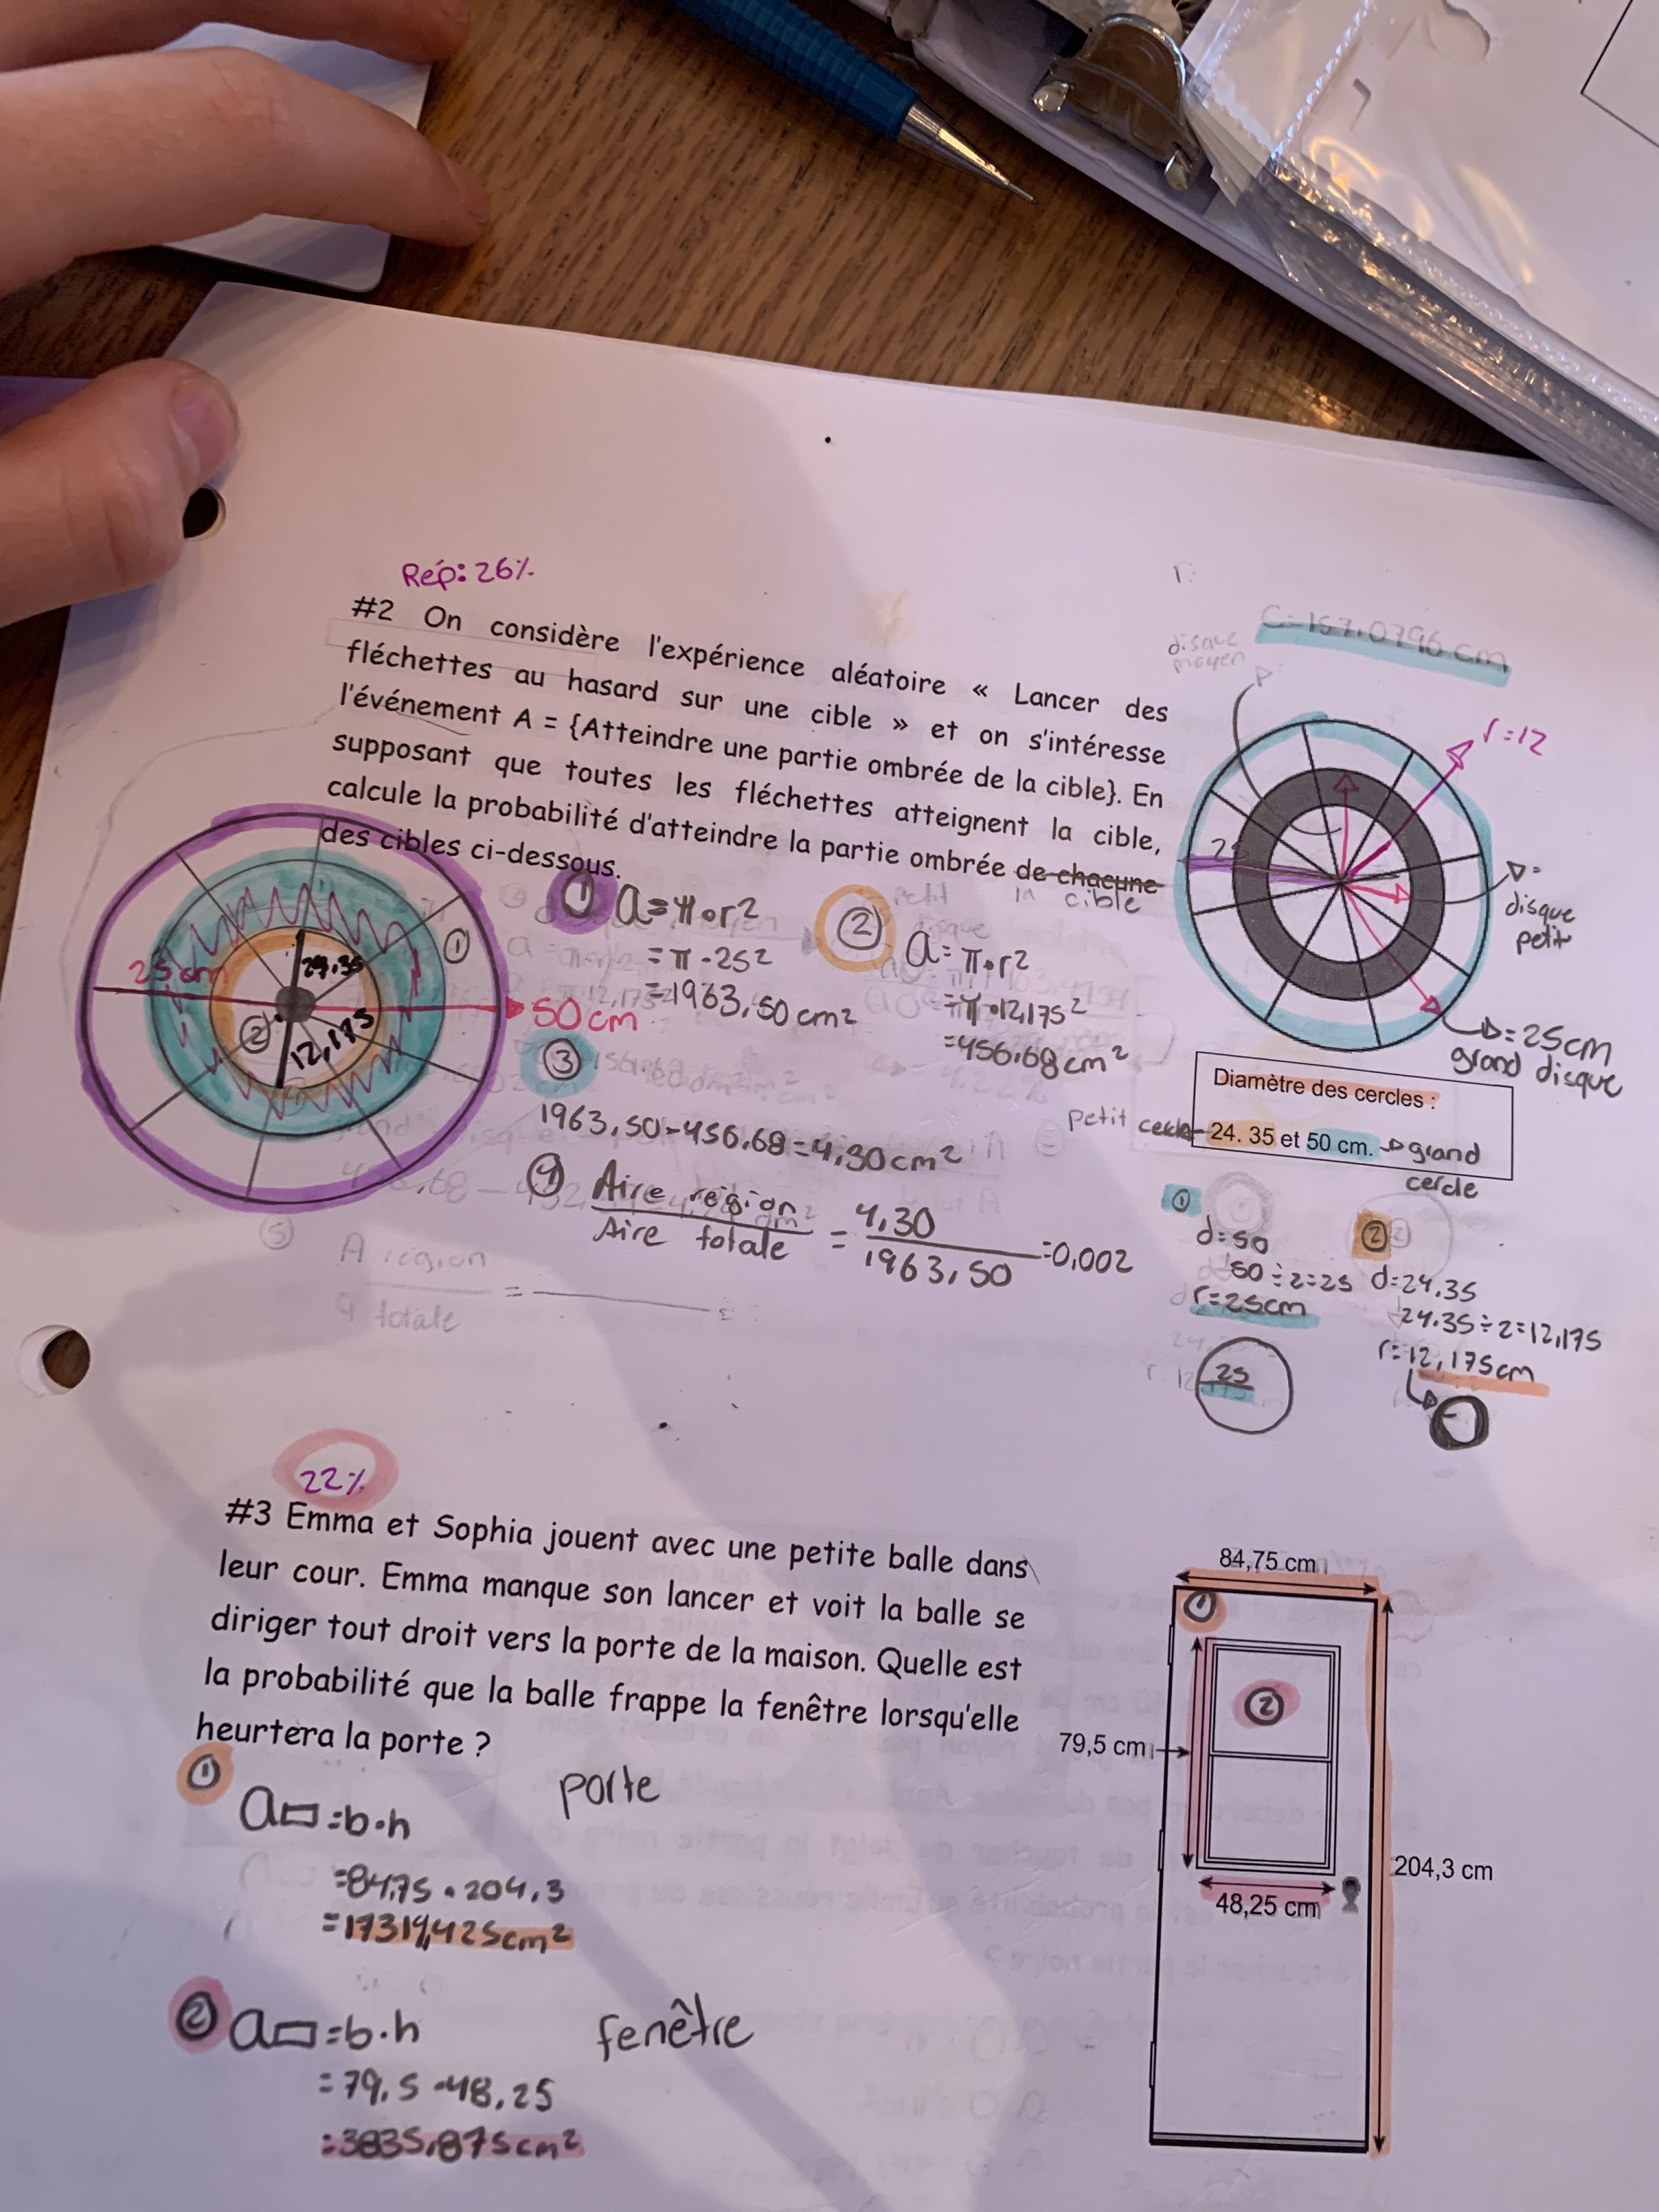 Rép: 26%
#2 On considère l'expérience aléatoire « Lancer des
fléchettes au hasard sur une cible » et on s'intéresse
l'événement A = {Atteindre une partie ombrée de la cible}. En
supposant que toutes les fléchettes atteignent la cible,
calcule la probabilité d'atteindre la partie ombrée de chacune
des cibles ci-dessous.
cible
r:
C=157,0796 cm
disque
moyen
r=12
25
disque
petit
=25cm
grand disque
Diamètre des cercles :
petit cercle
24. 35 et 50 cm.
grand
cercle
25cm
24.35
12,175
50cm
1
2
1 a=π•r²
=π•25²
=1963,50cm²
2 a=π•r²
=π•12,175²
=456.68cm²
3
1963,50-456,68=4,30cm²
4 Aire région
Aire totale
= 4,30
1963,50
=0,002
5 A région
a totale
= =
1
d=50
50÷2=25
r=25cm
25
2
d=24,35
24.35÷2=12,175
r=12,175cm
22%
#3 Emma et Sophia jouent avec une petite balle dans
leur cour. Emma manque son lancer et voit la balle se
diriger tout droit vers la porte de la maison. Quelle est
la probabilité que la balle frappe la fenêtre lorsqu'elle
heurtera la porte ?
84,75 cm
1
2
79,5 cm
48,25 cm
204,3 cm
1 porte
a▭=b•h
=84,75•204,3
=17319,425cm²
2 a▭=b•h fenêtre
=79,5•48,25
=3835,875cm²